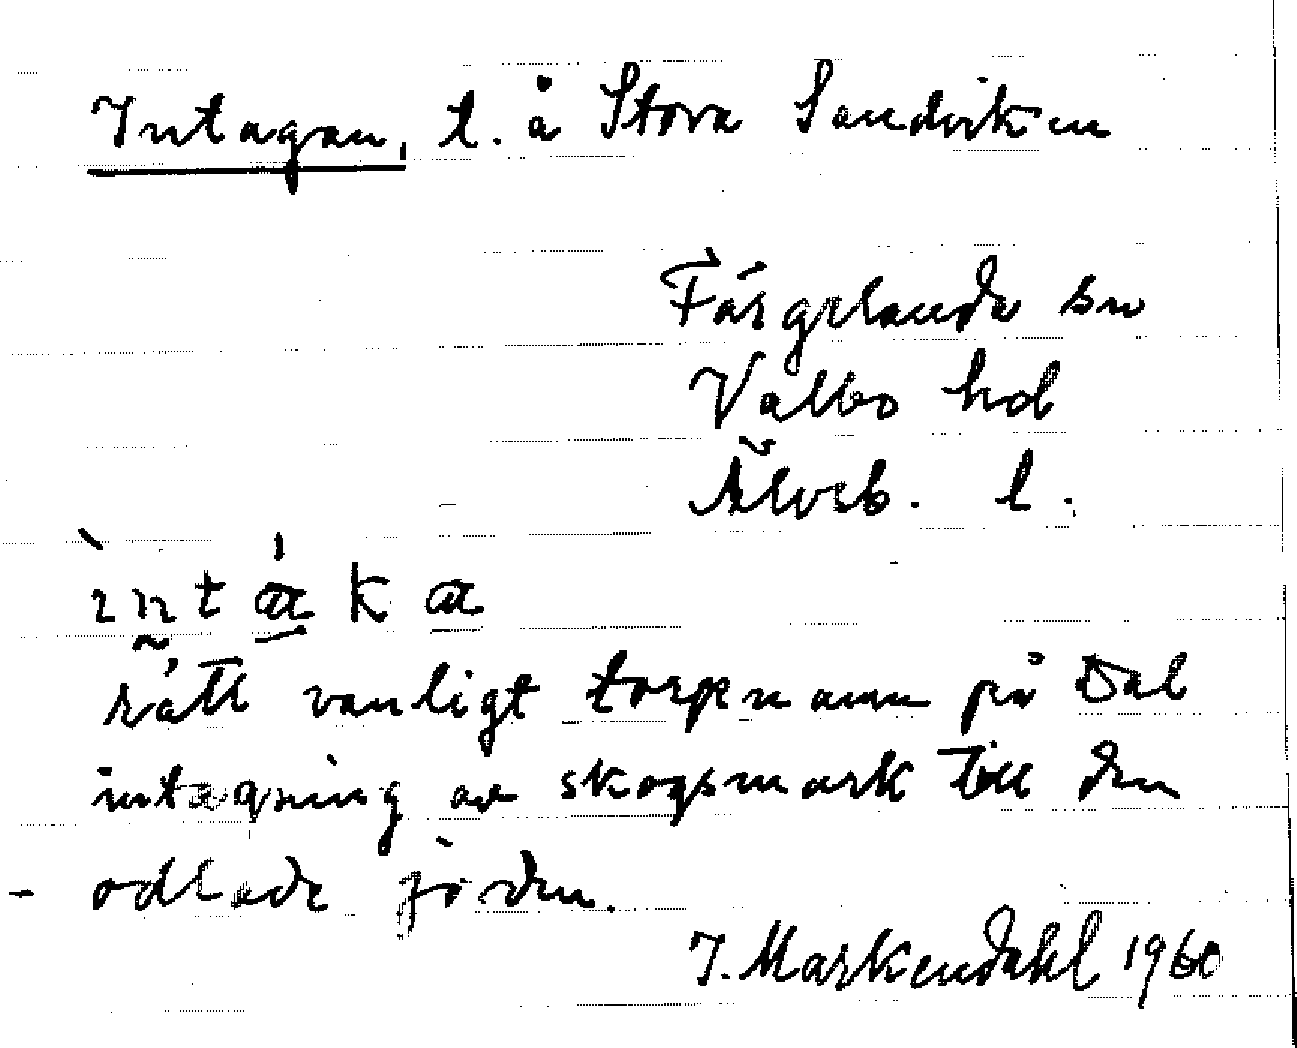 Intagan, t. å Stora Sandviken
Färgelanda sn
Valbo hd
Älvsb. l.
rätt vanligt torpnamn på Dal
intagning av skogsmark till den
odlade jorden.
J. Markendahl 1960